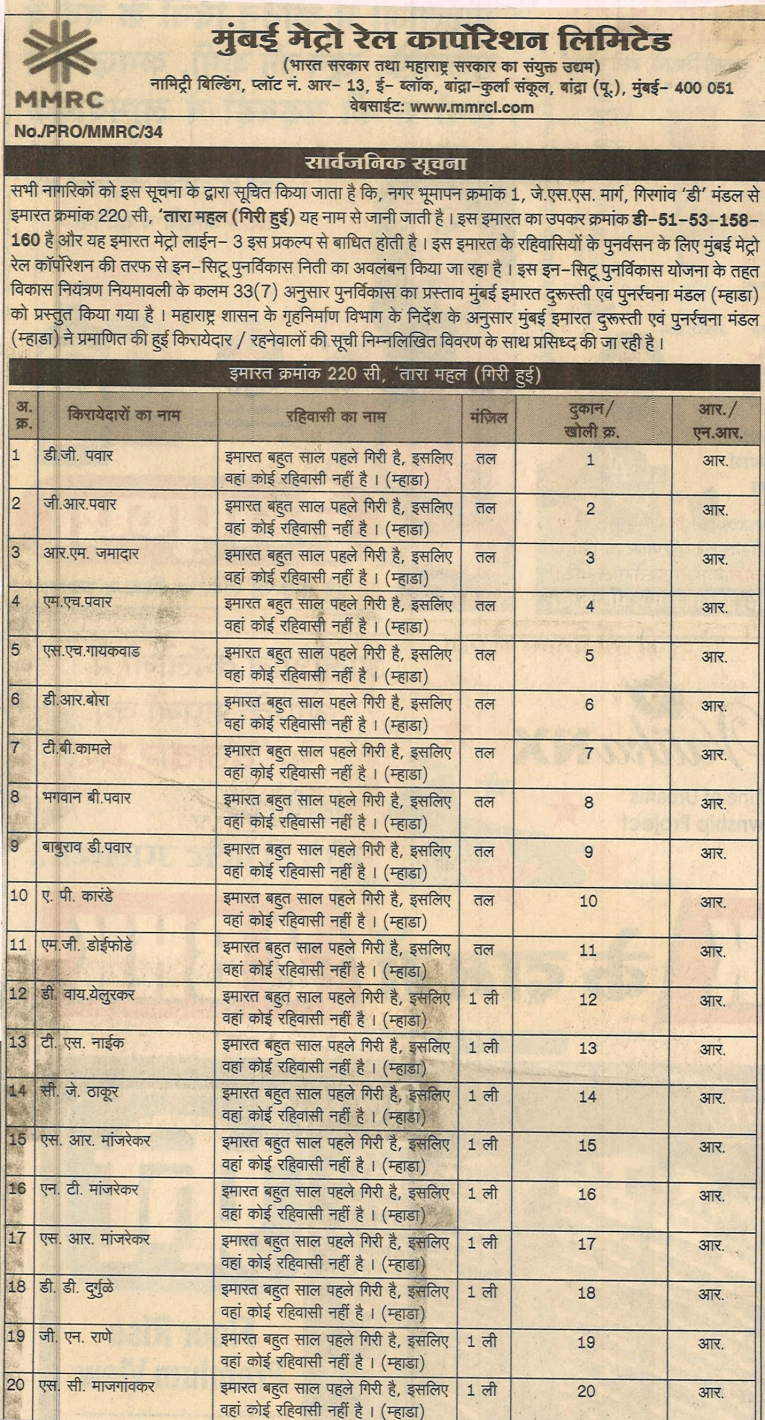 मुंबई मेट्रो रेल कार्पोरेशन लिमिटेड
(भारत सरकार तथा महाराष्ट्र सरकार का संयुक्त उद्यम)
नामिट्री बिल्डिंग, प्लॉट नं. आर– 13, ई– ब्लॉक, बांद्रा–कुर्ला संकूल, बांद्रा (पू.), मुंबई– 400 051
वेबसाईट: www.mmrcl.com
MMRC
No./PRO/MMRC/34
सार्वजनिक सूचना
सभी नागरिकों को इस सूचना के द्वारा सूचित किया जाता है कि, नगर भूमापन क्रमांक 1, जे.एस.एस. मार्ग, गिरगांव 'डी' मंडल से
इमारत क्रमांक 220 सी, 'तारा महल (गिरी हुई) यह नाम से जानी जाती है। इस इमारत का उपकर क्रमांक डी–51–53–158–
160 है और यह इमारत मेट्रो लाईन– 3 इस प्रकल्प से बाधित होती है। इस इमारत के रहिवासियों के पुनर्वसन के लिए मुंबई मेट्रो
रेल कॉर्पोरेशन की तरफ से इन–सिटू पुनर्विकास निती का अवलंबन किया जा रहा है। इस इन–सिटू पुनर्विकास योजना के तहत
विकास नियंत्रण नियमावली के कलम 33(7) अनुसार पुनर्विकास का प्रस्ताव मुंबई इमारत दुरूस्ती एवं पुनर्रचना मंडल (म्हाडा)
को प्रस्तुत किया गया है। महाराष्ट्र शासन के गृहनिर्माण विभाग के निर्देश के अनुसार मुंबई इमारत दुरूस्ती एवं पुनर्रचना मंडल
(म्हाडा) ने प्रमाणित की हुई किरायेदार / रहनेवालों की सूची निम्नलिखित विवरण के साथ प्रसिध्द की जा रही है।
इमारत क्रमांक 220 सी, 'तारा महल (गिरी हुई)
अ. क्र. किरायेदारों का नाम रहिवासी का नाम मंज़िल दुकान/ खोली क्र. आर./ एन.आर.
1 डी.जी. पवार इमारत बहुत साल पहले गिरी है, इसलिए तल 1 आर.
वहां कोई रहिवासी नहीं है। (म्हाडा)
2 जी.आर.पवार इमारत बहुत साल पहले गिरी है, इसलिए तल 2 आर.
वहां कोई रहिवासी नहीं है। (म्हाडा)
3 आर.एम. जमादार इमारत बहुत साल पहले गिरी है, इसलिए तल 3 आर.
वहां कोई रहिवासी नहीं है। (म्हाडा)
4 एम.एच.पवार इमारत बहुत साल पहले गिरी है, इसलिए तल 4 आर.
वहां कोई रहिवासी नहीं है। (म्हाडा)
5 एस.एच.गायकवाड इमारत बहुत साल पहले गिरी है, इसलिए तल 5 आर.
वहां कोई रहिवासी नहीं है। (म्हाडा)
6 डी.आर.बोरा इमारत बहुत साल पहले गिरी है, इसलिए तल 6 आर.
वहां कोई रहिवासी नहीं है। (म्हाडा)
7 टी.बी.कामले इमारत बहुत साल पहले गिरी है, इसलिए तल 7 आर.
वहां कोई रहिवासी नहीं है। (म्हाडा)
8 भगवान बी.पवार इमारत बहुत साल पहले गिरी है, इसलिए तल 8 आर.
वहां कोई रहिवासी नहीं है। (म्हाडा)
9 बाबुराव डी.पवार इमारत बहुत साल पहले गिरी है, इसलिए तल 9 आर.
वहां कोई रहिवासी नहीं है। (म्हाडा)
10 ए. पी. कारंडे इमारत बहुत साल पहले गिरी है, इसलिए तल 10 आर.
वहां कोई रहिवासी नहीं है। (म्हाडा)
11 एम.जी. डोईफोडे इमारत बहुत साल पहले गिरी है, इसलिए तल 11 आर.
वहां कोई रहिवासी नहीं है। (म्हाडा)
12 डी. वाय.येलुरकर इमारत बहुत साल पहले गिरी है, इसलिए 1 ली 12 आर.
वहां कोई रहिवासी नहीं है। (म्हाडा)
13 टी. एस. नाईक इमारत बहुत साल पहले गिरी है, इसलिए 1 ली 13 आर.
वहां कोई रहिवासी नहीं है। (म्हाडा)
14 सी. जे. ठाकूर इमारत बहुत साल पहले गिरी है, इसलिए 1 ली 14 आर.
वहां कोई रहिवासी नहीं है। (म्हाडा)
15 एस. आर. मांजरेकर इमारत बहुत साल पहले गिरी है, इसलिए 1 ली 15 आर.
वहां कोई रहिवासी नहीं है। (म्हाडा)
16 एन. टी. मांजरेकर इमारत बहुत साल पहले गिरी है, इसलिए 1 ली 16 आर.
वहां कोई रहिवासी नहीं है। (म्हाडा)
17 एस. आर. मांजरेकर इमारत बहुत साल पहले गिरी है, इसलिए 1 ली 17 आर.
वहां कोई रहिवासी नहीं है। (म्हाडा)
18 डी. डी. दुर्गुळे इमारत बहुत साल पहले गिरी है, इसलिए 1 ली 18 आर.
वहां कोई रहिवासी नहीं है। (म्हाडा)
19 जी. एन. राणे इमारत बहुत साल पहले गिरी है, इसलिए 1 ली 19 आर.
वहां कोई रहिवासी नहीं है। (म्हाडा)
20 एस. सी. माजगांवकर इमारत बहुत साल पहले गिरी है, इसलिए 1 ली 20 आर.
वहां कोई रहिवासी नहीं है। (म्हाडा)